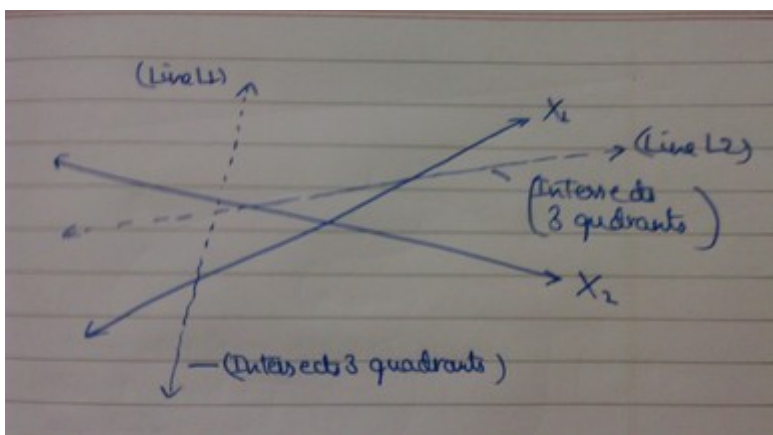 (Line L1)
X₁
(Line L2)
(Intersects
3 quadrants)
X₂
—(Intersects 3 quadrants)